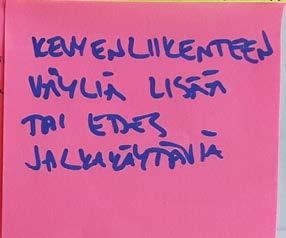 KEVYENLIIKENTEEN
VÄYLIÄ LISÄÄ
TAI EDES
JALKAKÄYTÄVIÄ